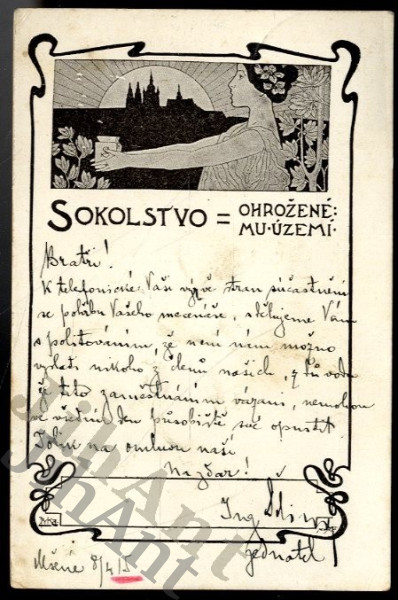 SOKOLSTVO = OHROŽENÉ:
MU·ÚZEMÍ·
Bratři!
K telefonické Vaší výzvě stran súčastnění
se pohřbu Vašeho mecenáše, sdělujeme Vám
s politováním, že není nám možno
vyslati nikoho z členů našich, z důvodu
že tito zaměstnáním vázáni, nemohou
ve všední den působiště své opustit.
Tolik na omluvu naši
Na zdar!
Ing.
jednatel
Mšené 8/4/5
JihAnt
JihAnt